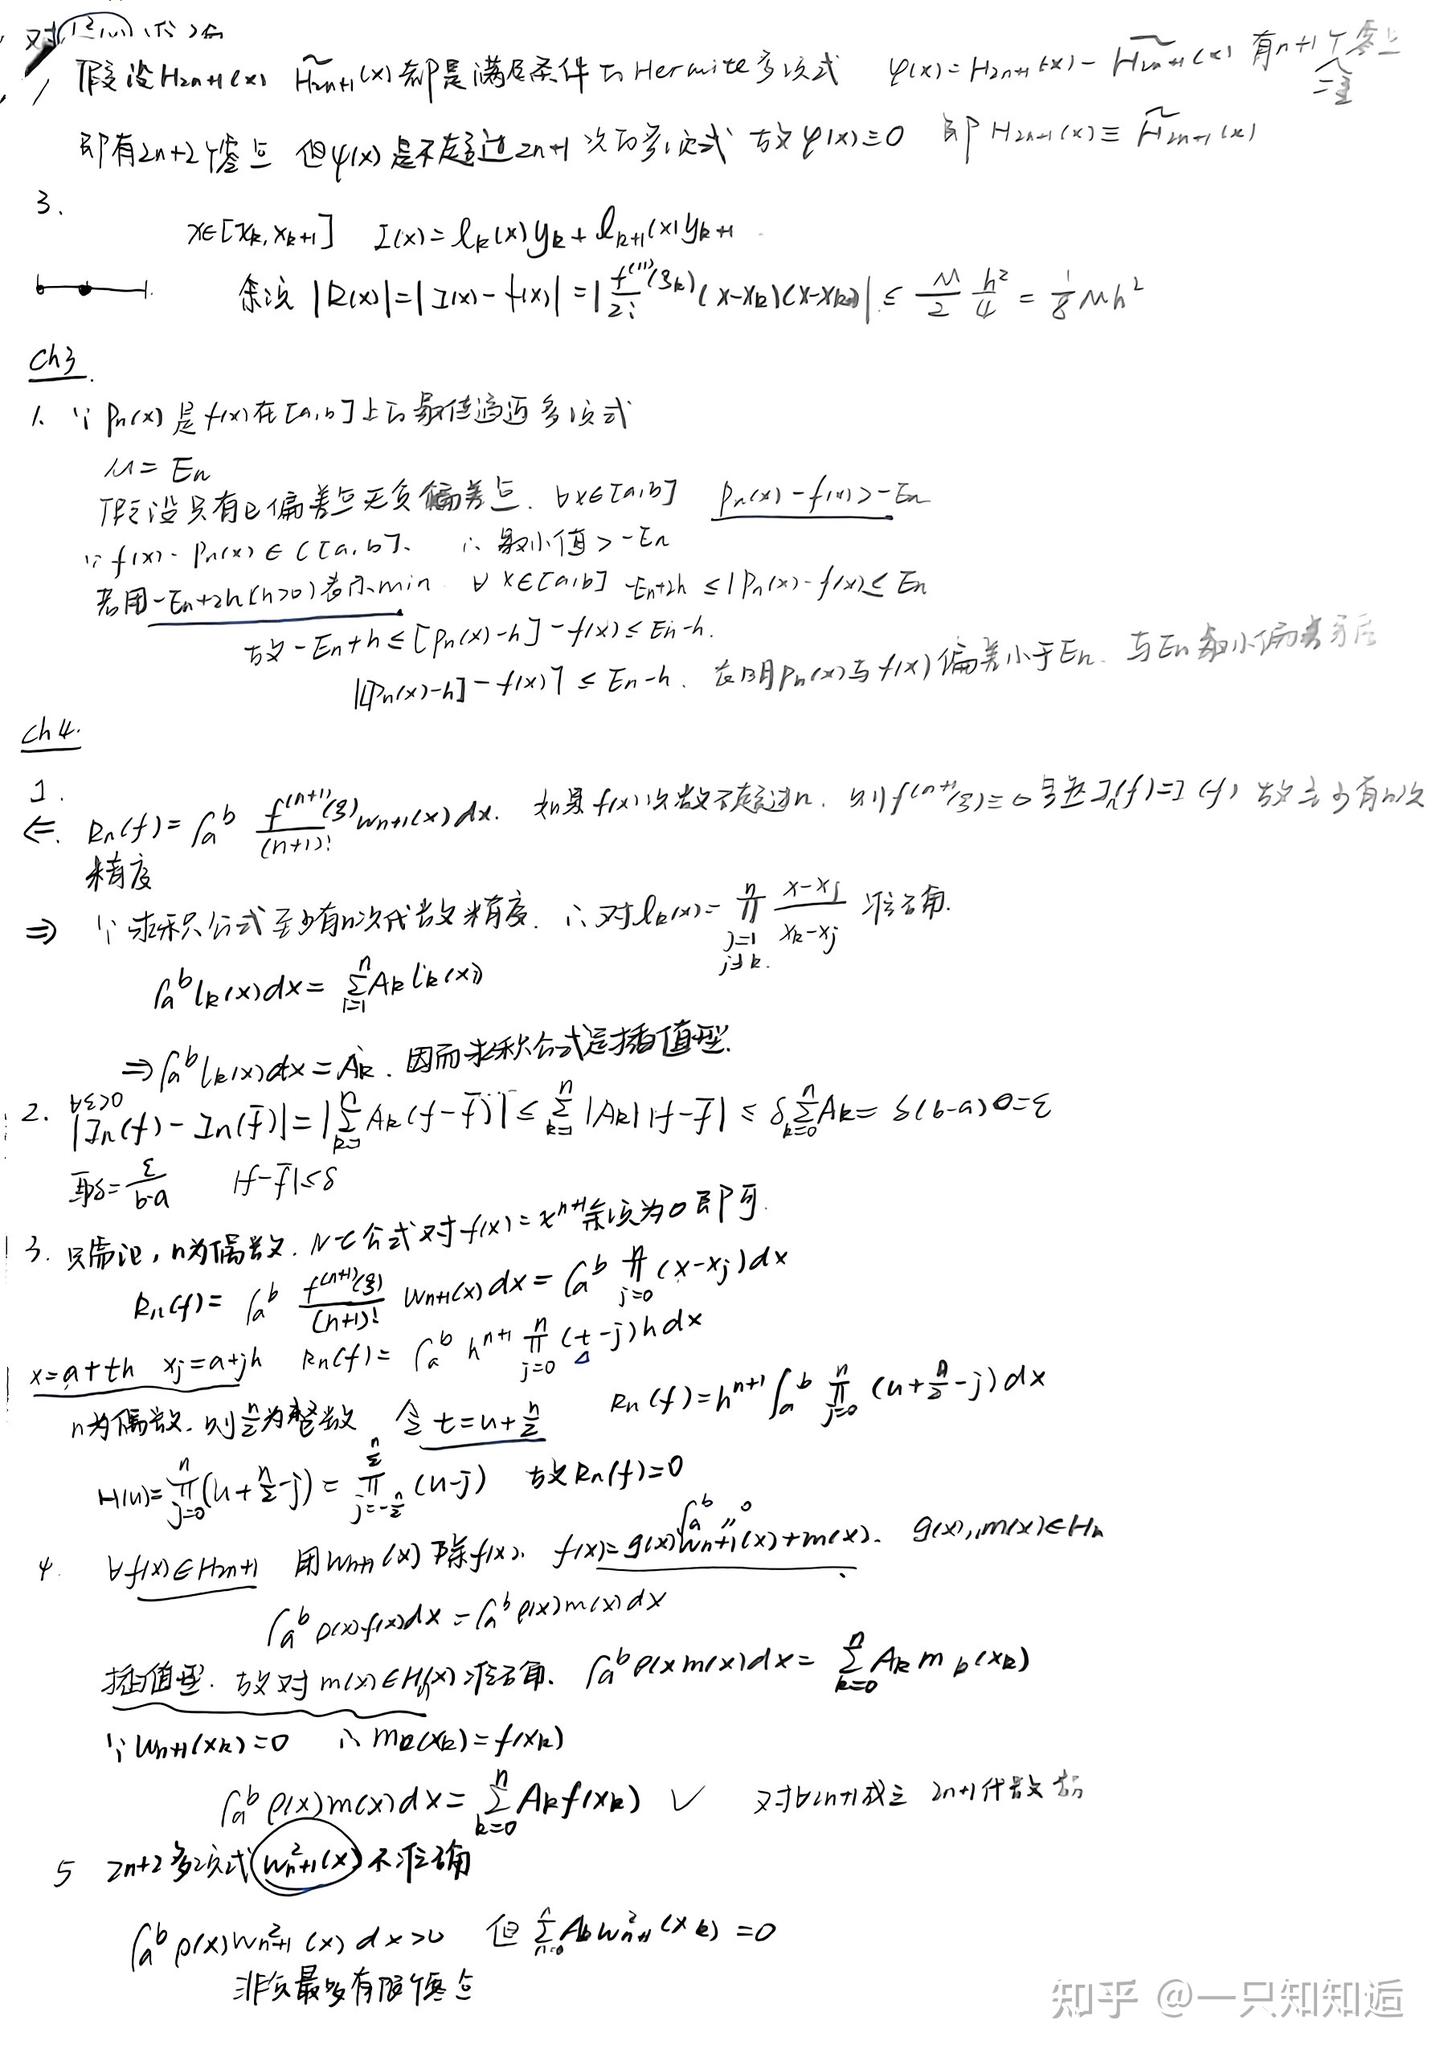 对
假设H₂ₙ₊₁(x) H̃₂ₙ₊₁(x)都是满足条件的Hermite多项式 φ(x)=H₂ₙ₊₁(x)-H̃₂ₙ₊₁(x) 有n+1个二重零点
即有2n+2个零点 但φ(x)是不超过2n+1次的多项式 故φ(x)≡0 即H₂ₙ₊₁(x)≡H̃₂ₙ₊₁(x)
3.
x∈[xₖ,xₖ₊₁] I(x)=lₖ(x)yₖ+lₖ₊₁(x)yₖ₊₁
余项 |R(x)|=|I(x)-f(x)|=|f^(11)(ξₖ)/2! (x-xₖ)(x-xₖ₊₁)| ≤ M/2 h²/4 = 1/8 Mh²
Ch3.
1. ∵Pₙ(x)是f(x)在[a,b]上的最佳逼近多项式
M=Eₙ
假设只有正偏差点无负偏差点. ∀x∈[a,b] Pₙ(x)-f(x)>-Eₙ
∵f(x)-Pₙ(x)∈C[a,b]. ∴最小值>-Eₙ
若用-Eₙ+2h(h>0)表示min ∀x∈[a,b] -Eₙ+2h≤|Pₙ(x)-f(x)≤Eₙ
故-Eₙ+h≤[Pₙ(x)-h]-f(x)≤Eₙ-h.
|[Pₙ(x)-h]-f(x)|≤Eₙ-h. 表明Pₙ(x)与f(x)偏差小于Eₙ. 与Eₙ最小偏差矛盾
Ch4.
1.
⇐. Rₙ(f)=∫ₐᵇ f^(n+1)(ξ)/(n+1)! wₙ₊₁(x)dx. 如果f(x)次数不超过n. 则f^(n+1)(ξ)≡0 Iₙ(f)=I(f) 故至少有n次
精度
⇒ ∵求积公式至少有n次代数精度. ∴对lₖ(x)=∏(j=1, j≠k → n) (x-xⱼ)/(xₖ-xⱼ) 准确.
∫ₐᵇlₖ(x)dx=∑(i=1→n)Aₖlₖ(xᵢ)
⇒∫ₐᵇlₖ(x)dx=Aₖ. 因而求积公式是插值型.
2. ∀ε>0
|Iₙ(f)-Iₙ(f̄)|=|∑(k=1→n)Aₖ(f-f̄)|≤∑(k=1→n)|Aₖ||f-f̄|≤δ∑(k=0→n)Aₖ=δ(b-a)=ε
取δ=ε/(b-a) |f-f̄|≤δ
3. 只需证, n为偶数. N-C公式对f(x)=xⁿ⁺¹余项为0即可.
Rₙ(f)=∫ₐᵇ f^(n+1)(ξ)/(n+1)! wₙ₊₁(x)dx=∫ₐᵇ∏(j=0→n)(x-xⱼ)dx
x=a+th xⱼ=a+jh Rₙ(f)=∫ₐᵇhⁿ⁺¹∏(j=0→n)(t-j)hdx
n为偶数. 则n/2为整数 令t=u+n/2 Rₙ(f)=hⁿ⁺¹∫ₐᵇ∏(j=0→n)(u+n/2-j)dx
H(u)=∏(j=0→n)(u+n/2-j)=∏(j=-n/2→n/2)(u-j) 故Rₙ(f)=0
4. ∀f(x)∈H₂ₙ₊₁ 用wₙ₊₁(x)除f(x). f(x)=g(x)wₙ₊₁(x)+m(x). g(x),m(x)∈Hₙ
∫ₐᵇ =0
∫ₐᵇρ(x)f(x)dx=∫ₐᵇρ(x)m(x)dx
插值型. 故对m(x)∈Hₙ(x)准确. ∫ₐᵇρ(x)m(x)dx=∑(k=0→n)Aₖm(xₖ)
∵wₙ₊₁(xₖ)=0 ∴m(xₖ)=f(xₖ)
∫ₐᵇρ(x)m(x)dx=∑(k=0→n)Aₖf(xₖ) ✓ 对∀2n+1成立 2n+1代数
5 2n+2多项式w²ₙ₊₁(x)不准确
∫ₐᵇρ(x)w²ₙ₊₁(x)dx>0 但∑Aₖw²ₙ₊₁(xₖ)=0
非负最多有限个零点
知乎 @一只知知逅